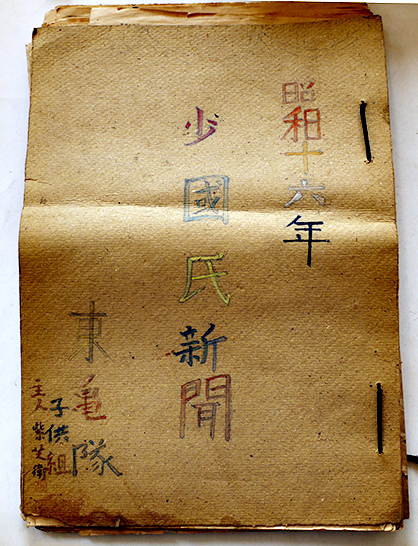 昭和十六年
少國民新聞
東亀隊
子供組
主人紫芝衛